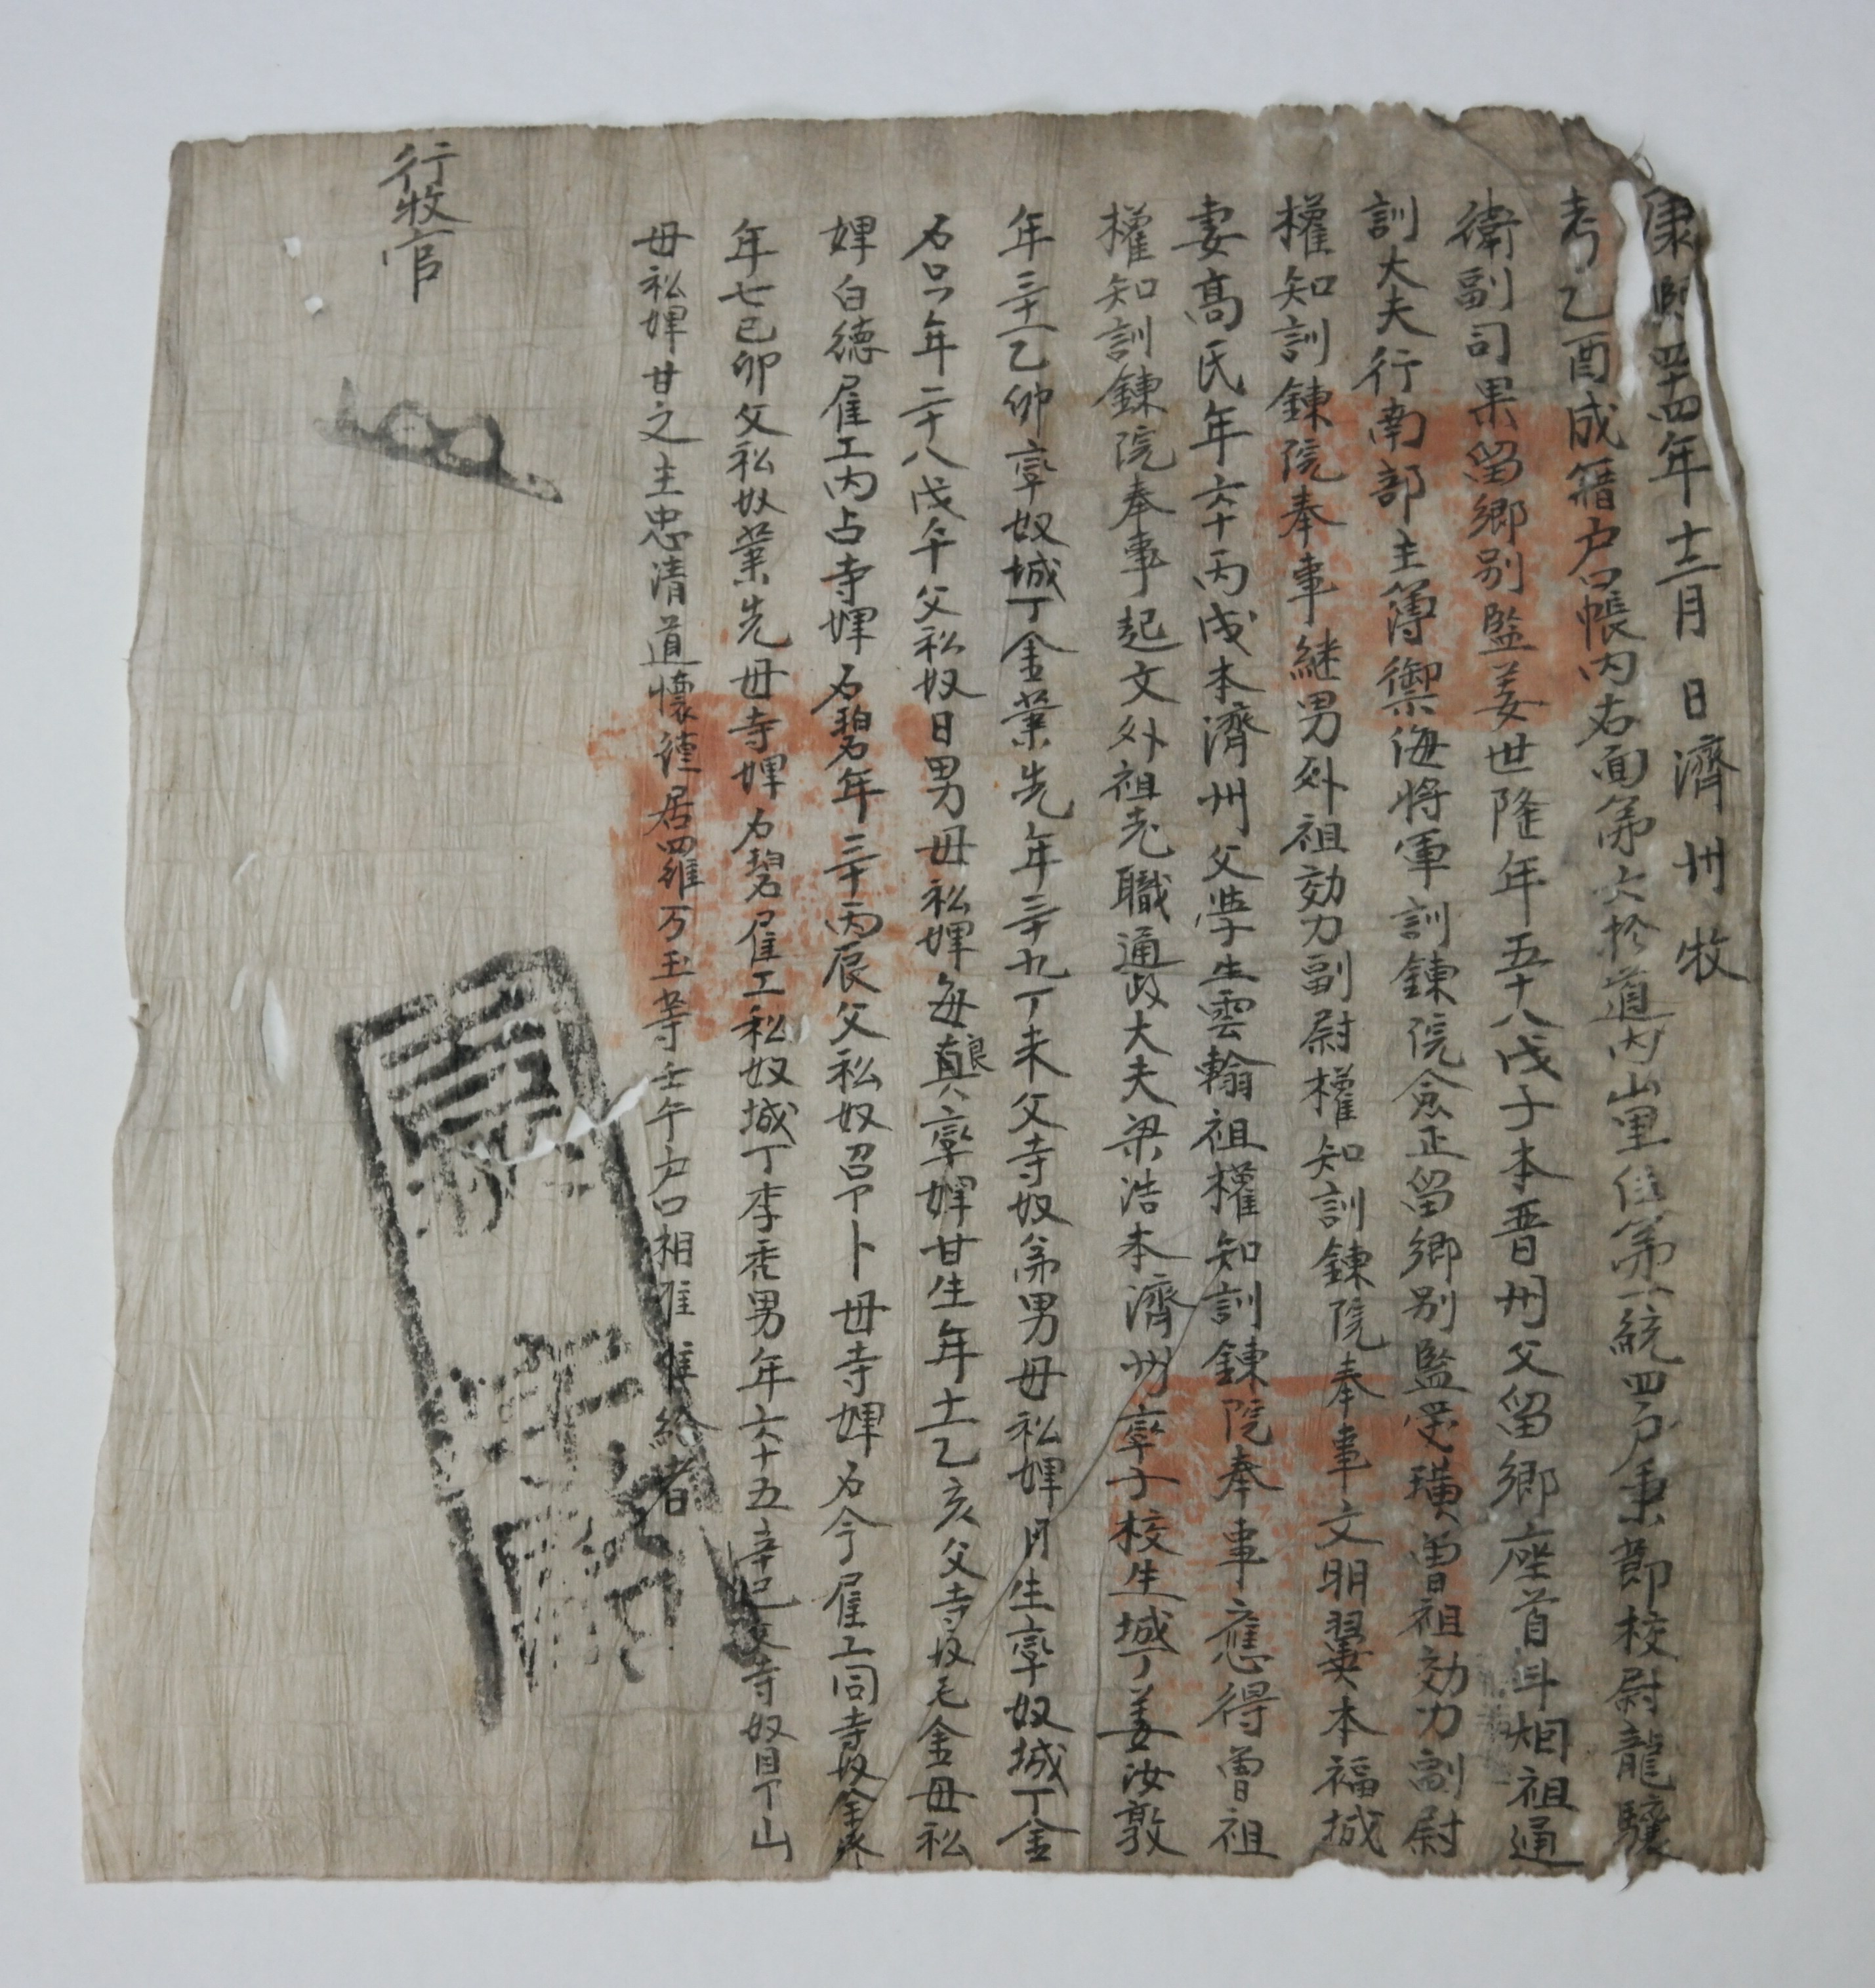 康熙四十四年十二月 日濟州牧
考乙酉成籍户口帳内右面第六於道内山里住第一統四户秉節校尉龍驤
衛副司果留鄉別監姜世隆年五十八戊子本晋州父留鄉座首 祖通
訓大夫行南部主簿禦侮将軍訓鍊院僉正留鄉別監受璜曽祖効力副尉
權知訓鍊院奉事継男外祖効力副尉權知訓鍊院奉事文明翼本福城
妻髙氏年六十丙戌本濟州父學生雲翰祖權知訓鍊院奉事應得曽祖
權知訓鍊院奉事起文外祖老職通政大夫梁浩本濟州率子校生城丁姜汝敦
年三十一乙卯率奴城丁金業先年三十九丁未父寺奴 男母私婢月生率奴城丁金
名 年二十八戊午父私奴日男母私婢每良 率婢甘生年十一乙亥父寺奴毛金母私
婢白德雇工内占寺婢名碧年三十丙辰父私奴召 卜母寺婢名今雇工同寺奴金
年七己卯父私奴業先母寺婢名碧雇工私奴城丁李 男年六十五辛巳父寺奴 山
母私婢甘之主忠清道懐德居羅万玉等壬午户口相准准給者
行牧官